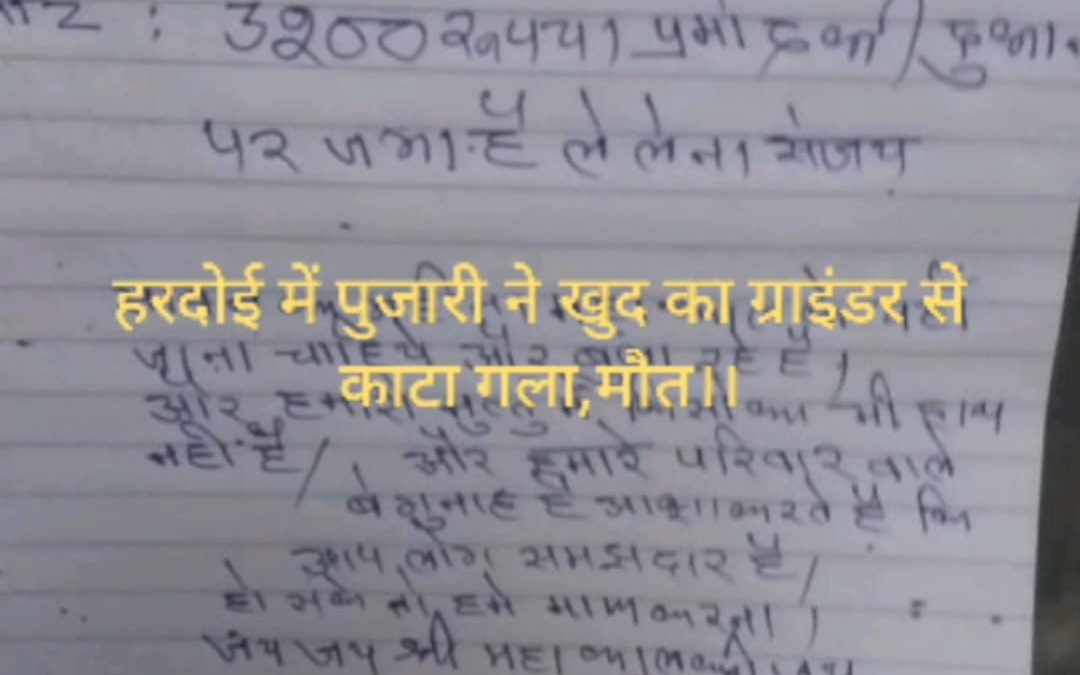 : 3200 रूपया प्रमोद की दुकान
पर जमा है ले लेना संजय
हरदोई में पुजारी ने खुद का ग्राइंडर से
जाना चाहिये और
काटा गला,मौत।।
और हमारी भी हाथ
नही है / और हमारे परिवार वाले
बेगुनाह है आशा करते है कि
आप लोग समझदार है /
हो सके तो हमे माफ करना ।
जय जय श्री महाकाल की जय